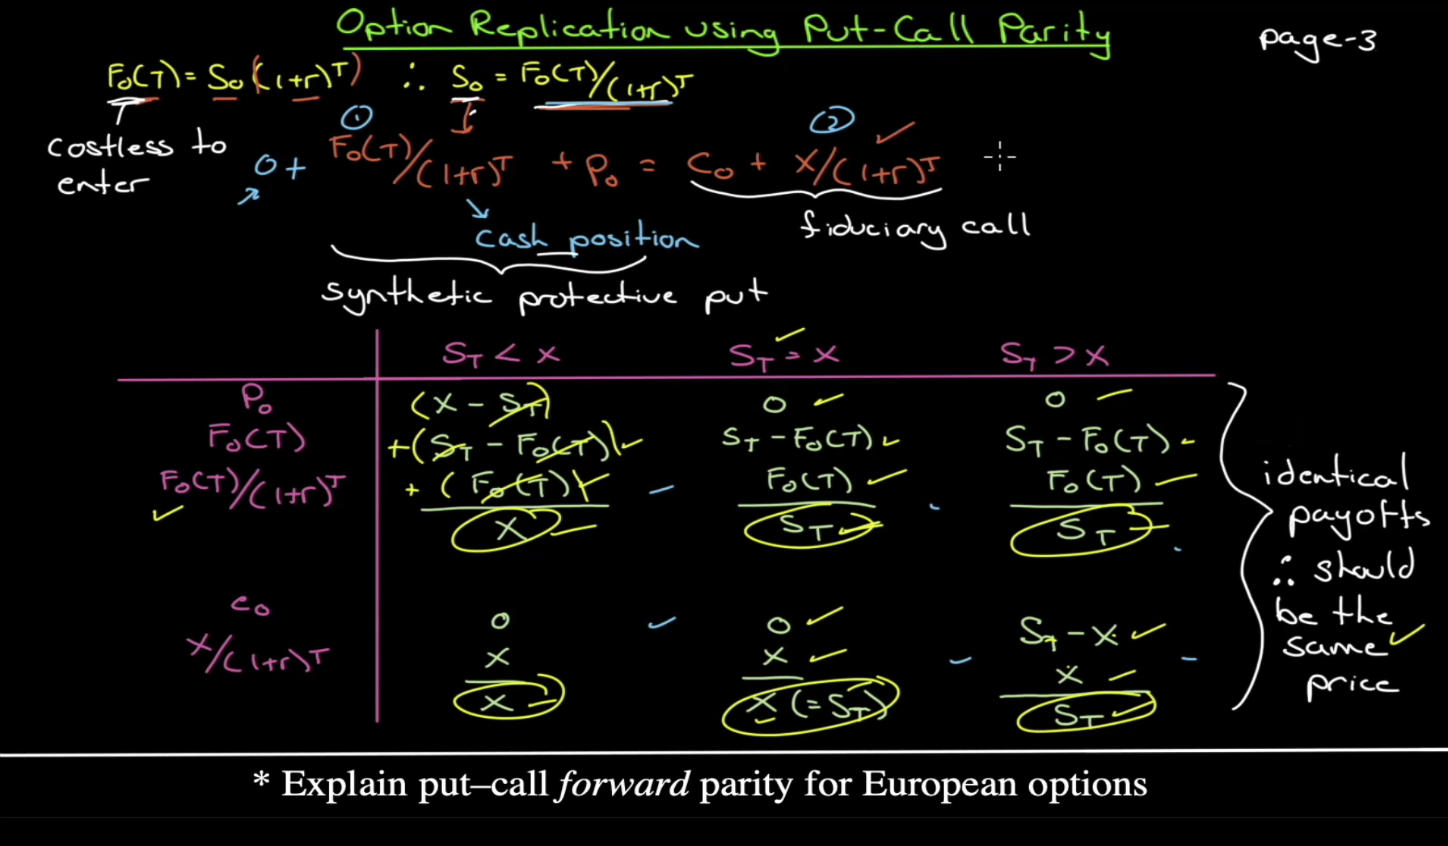 Option Replication using Put-Call Parity
page-3
F₀(T) = S₀(1+r)ᵀ ∴ S₀ = F₀(T)/(1+r)ᵀ
costless to enter
① ②
0 + F₀(T)/(1+r)ᵀ + p₀ = c₀ + X/(1+r)ᵀ
cash position
fiduciary call
synthetic protective put
S_T < X S_T = X S_T > X
P₀ (X - S_T) 0 0
F₀(T) +(S_T - F₀(T)) S_T - F₀(T) S_T - F₀(T)
F₀(T)/(1+r)ᵀ + (F₀(T)) F₀(T) F₀(T)
X S_T S_T
c₀ 0 0 S_T - X
X/(1+r)ᵀ X X X
X X (= S_T) S_T
identical
payoffs
∴ should
be the
same
price
* Explain put–call forward parity for European options